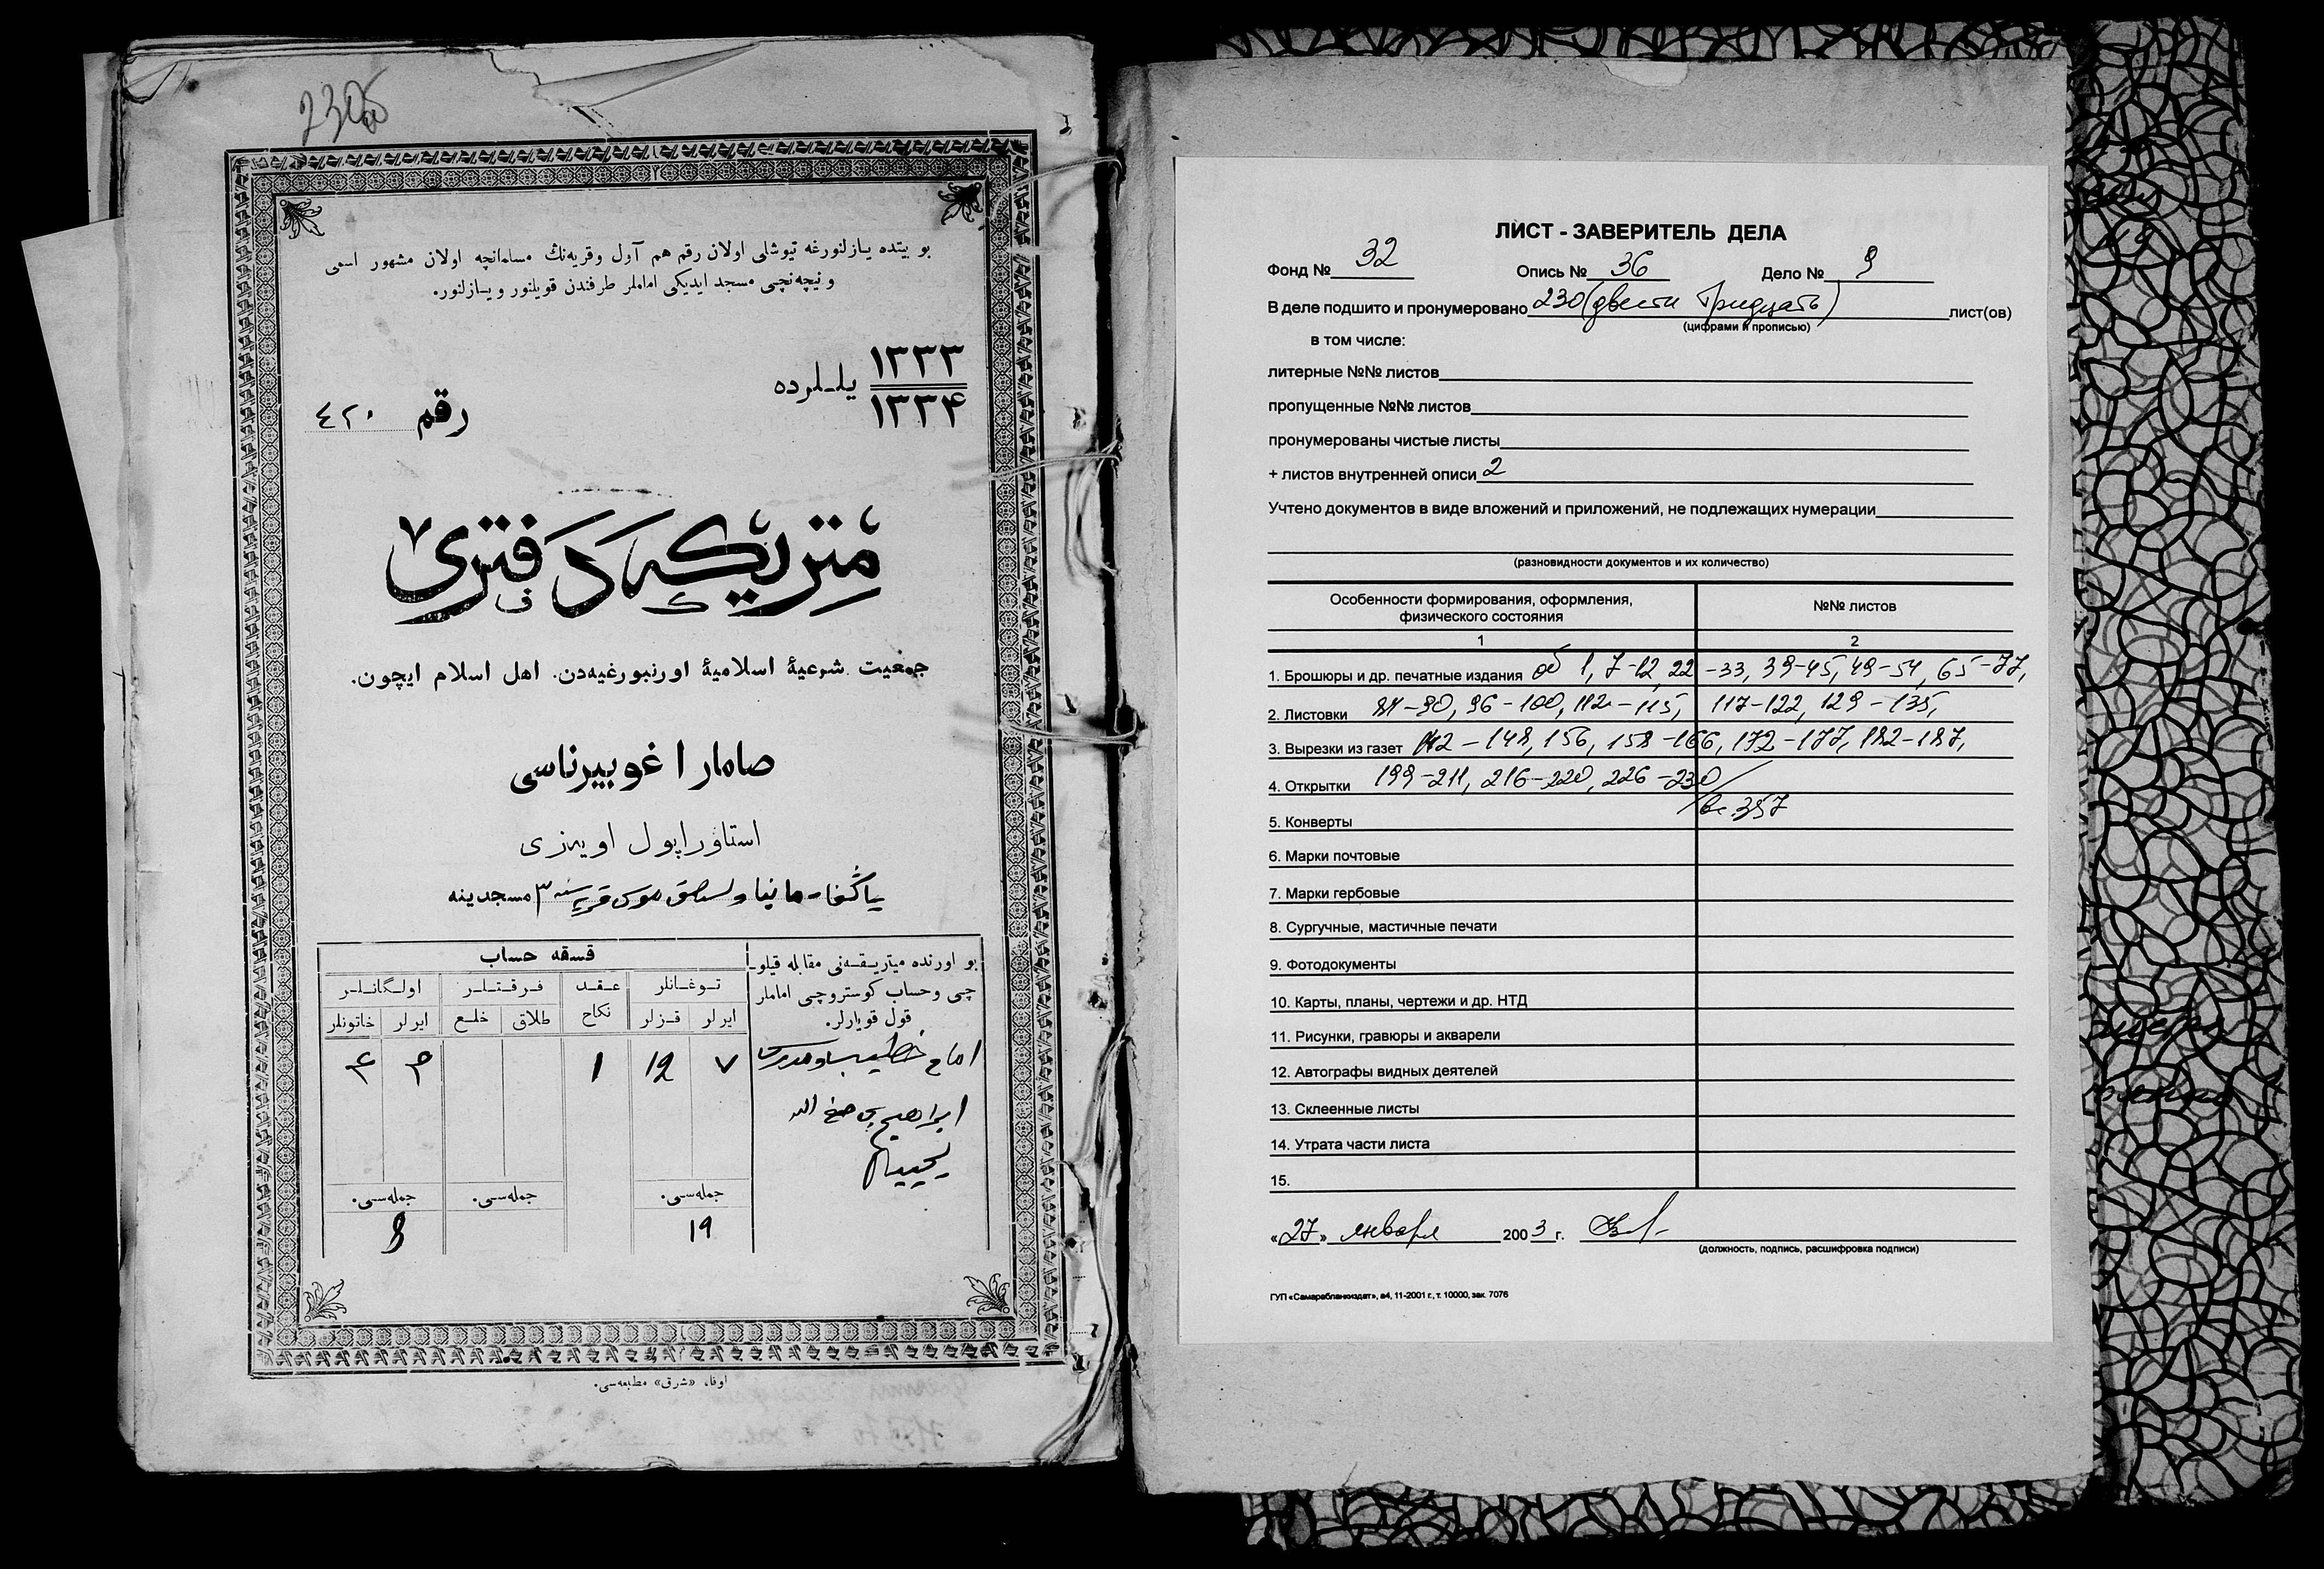 230об
بو بيتده يازلنورغه تيوشلى اولان رقم هم آول وقريه‌نڭ مسلمانچه اولان مشهور اسمى
ونيچه‌نچى مسجد ايديكى اماملر طرفندن قويلنور ويازلنور.
١٣٣٣
١٣٣۴
يللرده
رقم ٤٢٠
متريكه دفترى
جمعيت شرعيۀ اسلاميۀ اورنبورغيه‌دن. اهل اسلام ايچون.
صامارا غوبيرناسى
استاوراپول اويه‌زى
مسجدينه ٣
بو اورنده ميتريقه‌نى مقابله قيلو-
چى وحساب كوستروچى اماملر
قول قويارلر.
امام خطيب ومدرس
ابراهيم
قسقه حساب
توغانلر عقد نكاح فرقتلر اولگانلر
ايرلر قزلر طلاق خلع ايرلر خاتونلر
٧ 12 1 ٣ ٤
جمله‌سى. جمله‌سى. جمله‌سى.
١٩ 8
اوفا، «شرق» مطبعه‌سى.
ЛИСТ - ЗАВЕРИТЕЛЬ ДЕЛА
Фонд № 32 Опись № 36 Дело № 9
В деле подшито и пронумеровано 230 (двести тридцать) лист(ов)
(цифрами и прописью)
в том числе:
литерные №№ листов
пропущенные №№ листов
пронумерованы чистые листы
+ листов внутренней описи 2
Учтено документов в виде вложений и приложений, не подлежащих нумерации
(разновидности документов и их количество)
Особенности формирования, оформления, физического состояния №№ листов
1 2
1. Брошюры и др. печатные издания об 1, 7-12, 22-33, 39-45, 49-54, 65-77,
2. Листовки 81-90, 96-100, 112-115, 117-122, 129-135,
3. Вырезки из газет 142-148, 156, 158-166, 172-177, 182-187,
4. Открытки 199-211, 216-220, 226-230
5. Конверты 357
6. Марки почтовые
7. Марки гербовые
8. Сургучные, мастичные печати
9. Фотодокументы
10. Карты, планы, чертежи и др. НТД
11. Рисунки, гравюры и акварели
12. Автографы видных деятелей
13. Склеенные листы
14. Утрата части листа
15.
«27» января 2003 г.
(должность, подпись, расшифровка подписи)
ГУП «Самарабланкиздат», а4, 11-2001 г., т. 10000, зак. 7076